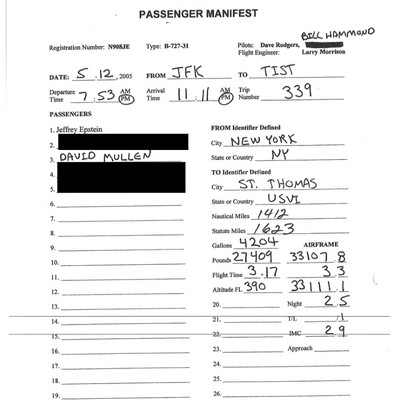 PASSENGER MANIFEST
BILL HAMMOND
Registration Number: N908JE Type: B-727-31 Pilots: Dave Rodgers,
Flight Engineer: Larry Morrison
DATE: 5.12, 2005 FROM JFK TO TIST
Departure Time 7:53 AM PM Arrival Time 11:11 AM PM Trip Number 339
PASSENGERS
1. Jeffrey Epstein
2.
3. DAVID MULLEN
4.
5.
6.
7.
8.
9.
10.
11.
12.
13.
14.
15.
16.
17.
18.
19.
FROM Identifier Defined
City NEW YORK
State or Country NY
TO Identifier Defined
City ST. THOMAS
State or Country USVI
Nautical Miles 1412
Statute Miles 1623
Gallons 4204 AIRFRAME
Pounds 27409 33107 8
Flight Time 3.17 3 3
Altitude FL 390 33111 1
20. Night 2 5
21. T/L 1
22. IMC 2 9
23. Approach
24.
25.
26.